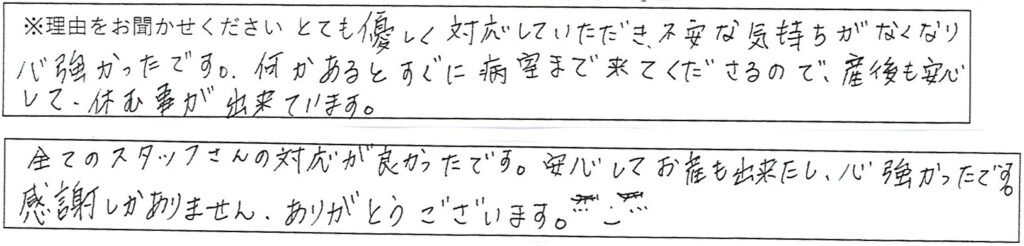 ※理由をお聞かせください とても優しく対応していただき、不安な気持ちがなくなり
心強かったです。何かあるとすぐに病室まで来てくださるので、産後も安心
して、休む事が出来ています。
全てのスタッフさんの対応が良かったです。安心してお産も出来たし、心強かったです。
感謝しかありません、ありがとうございます。